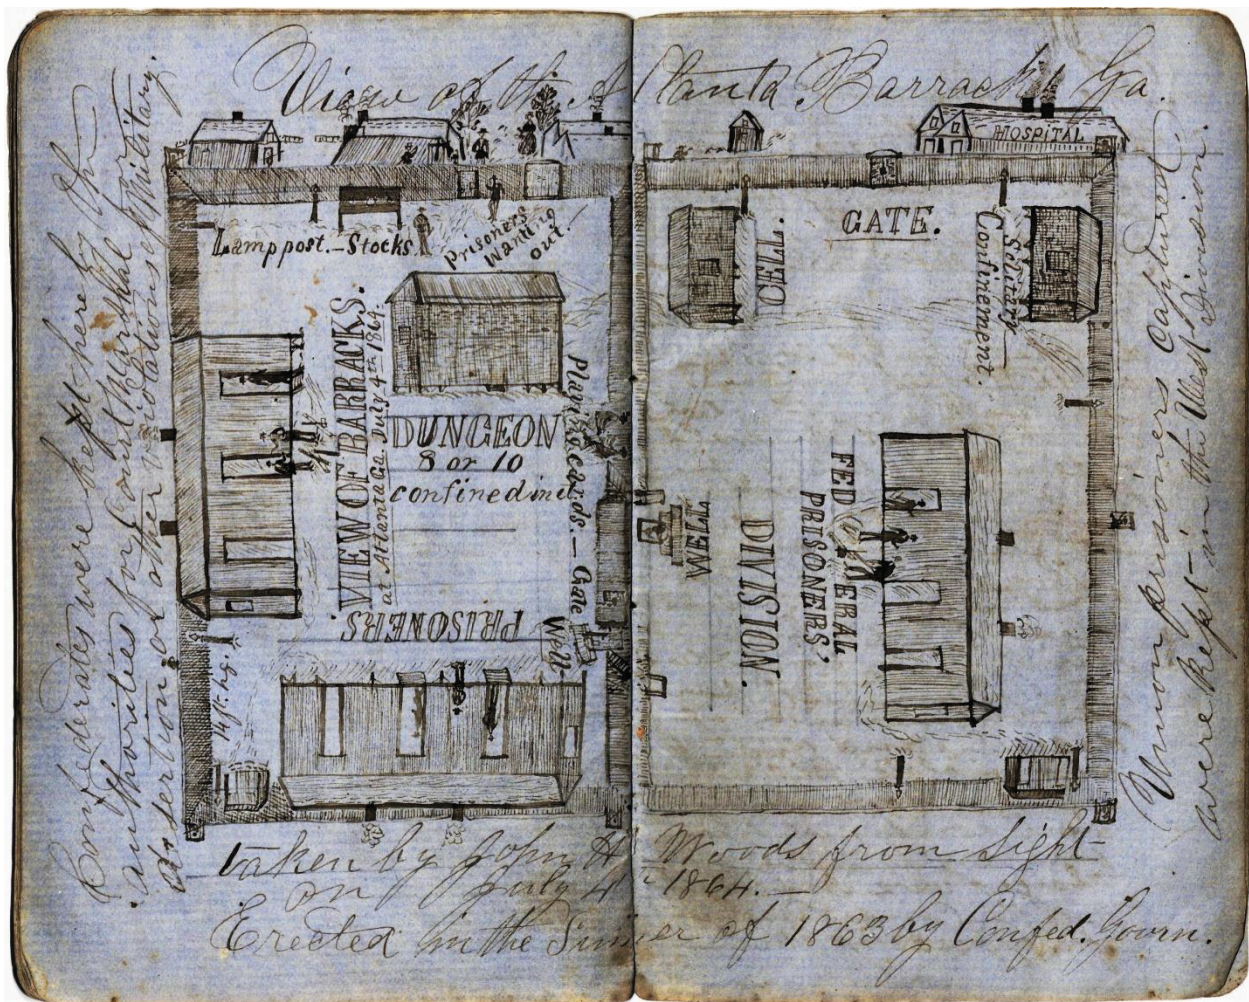 View of the Atlanta Barracks Ga.
Confederates were kept here by the
authorities for Court Marshal for
desertion or other violations of Military.
HOSPITAL
Lamp post. – Stocks.
Prisoners
Wanting
out.
GATE.
CELL.
Solitary
Confinement.
VIEW OF BARRACKS.
at Atlanta Ga. July 4th 1864.
DUNGEON
8 or 10
confined in it.
Playing cards. – Gate
Well
PRISONERS
14 ft. hig
WELL
DIVISION.
FEDERAL
PRISONERS'
Union prisoners captured
were kept in the West Division
taken by John H. Woods from sight
on July 4th 1864. –
Erected in the Summer of 1863 by Confed. Govrn.